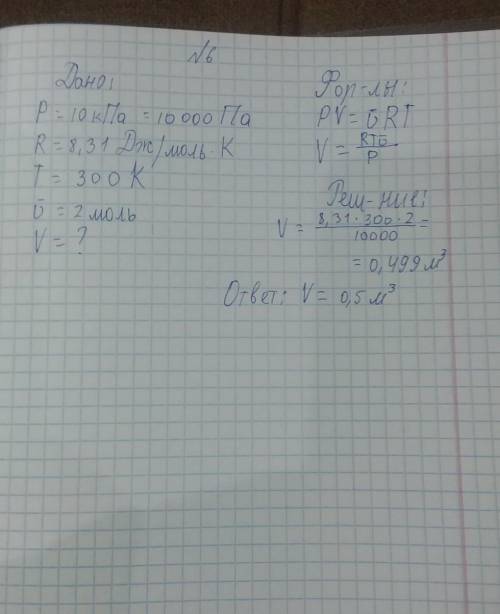 №6
Дано:
P = 10 кПа = 10000 Па
R = 8,31 Дж/моль·К
T = 300 К
υ̅ = 2 моль
V = ?
Фор-лы:
PV = υ̅RT
V = RTυ̅/P
Реш-ние:
V = 8,31·300·2/10000 =
= 0,499 м³
Ответ: V = 0,5 м³